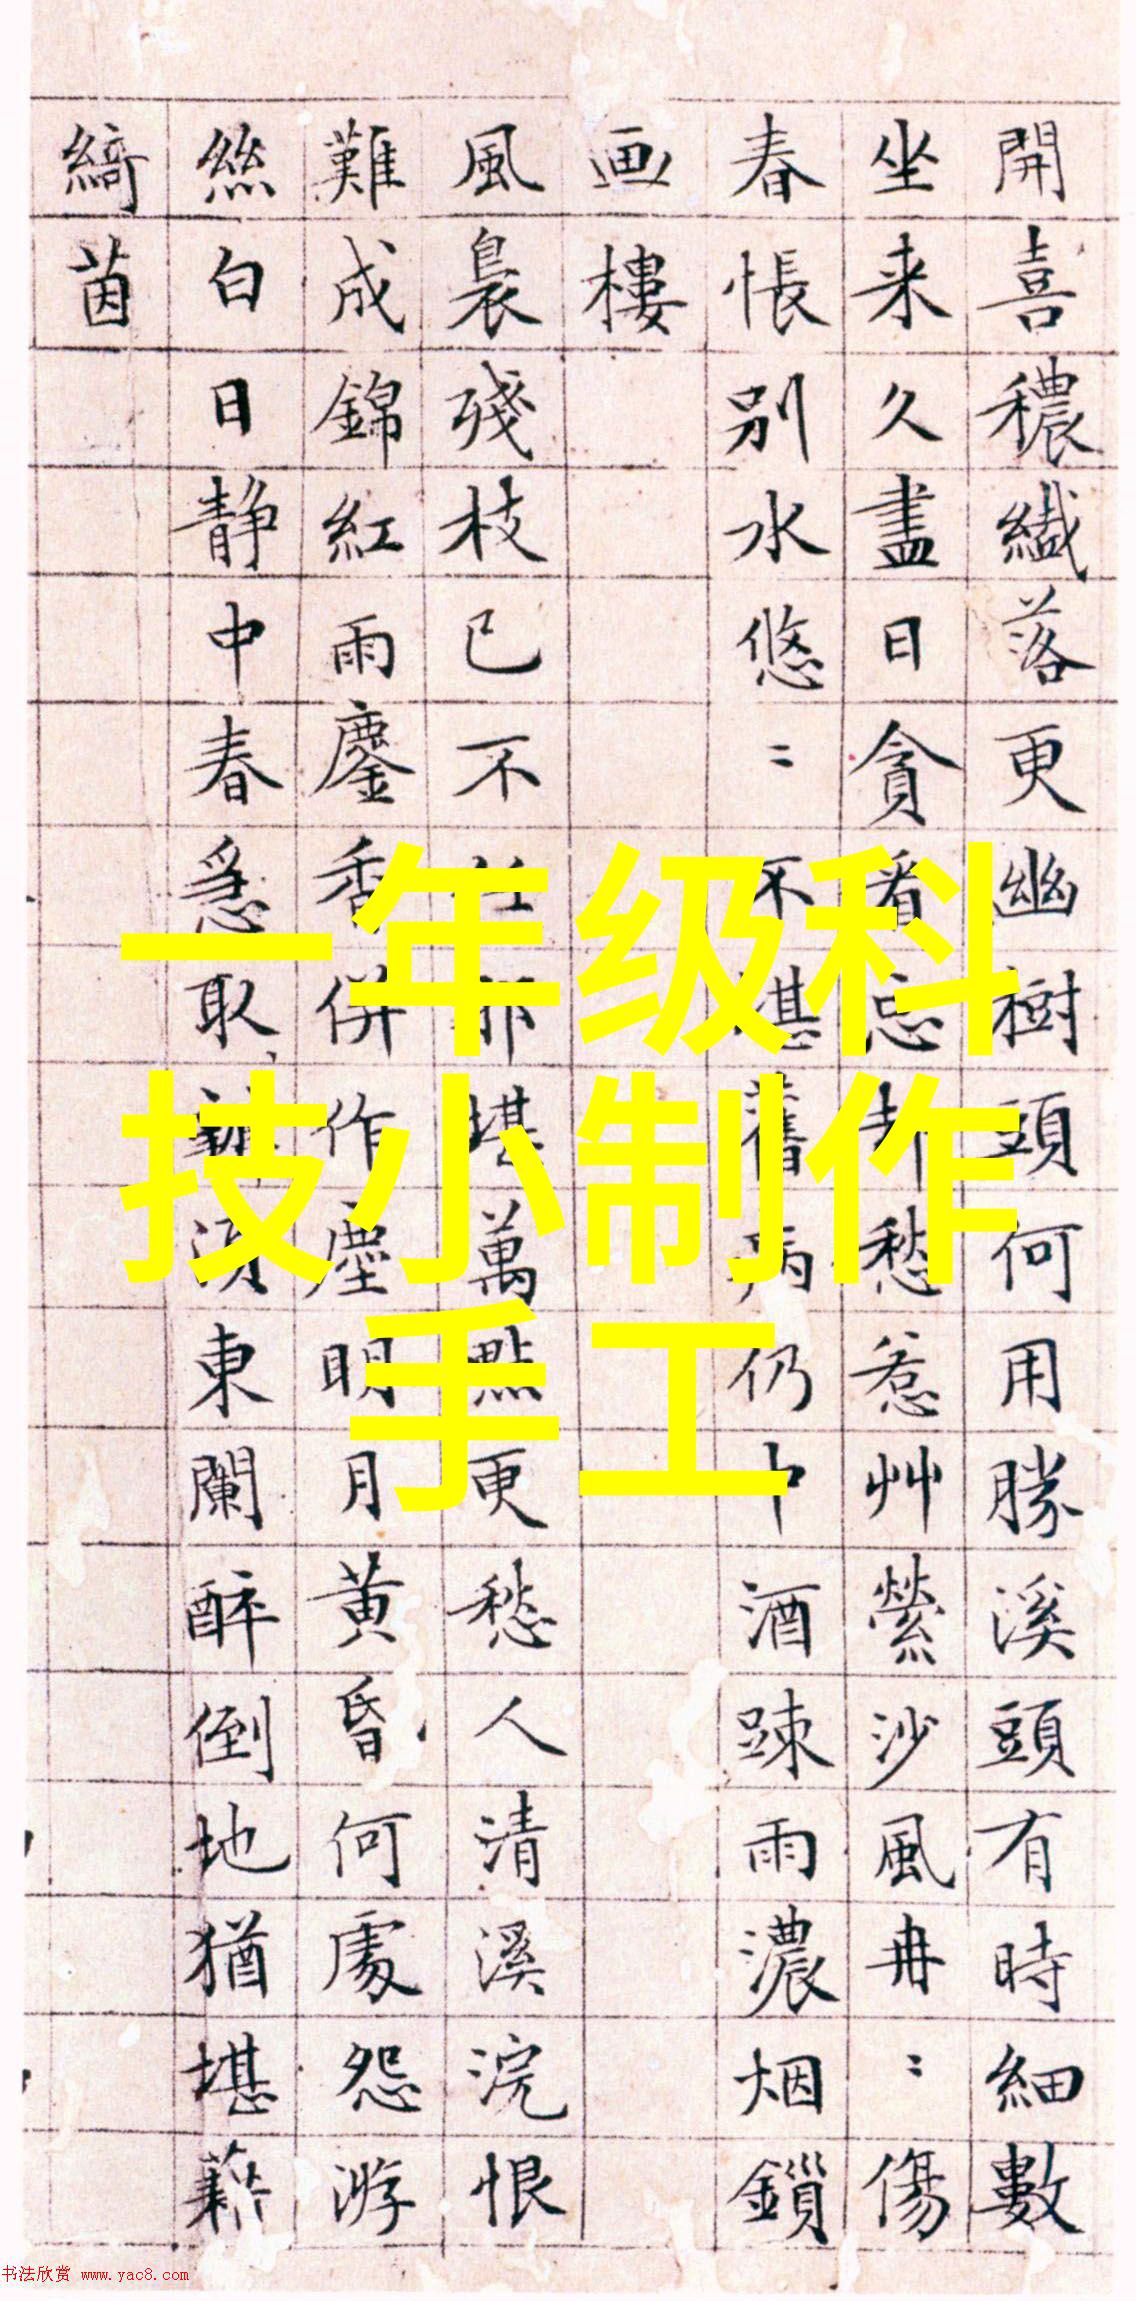 開喜穠纎落更幽樹頭何用勝溪頭有時細數
坐来久盡日貪看忘却愁惹艸縈沙風冉〻傷
春悵別水悠〻不堪舊病仍中酒踈雨濃烟鎖
画樓
風裊殘枝已不任那堪萬點更愁人清溪浣恨
難成錦紅雨鏖香併作塵明月黄昏何處怨游
絲白日静中春急取
東闌醉倒地猶堪藉
綺茵
一年级科
技小制作
手工
书法欣赏 www.yac8.com